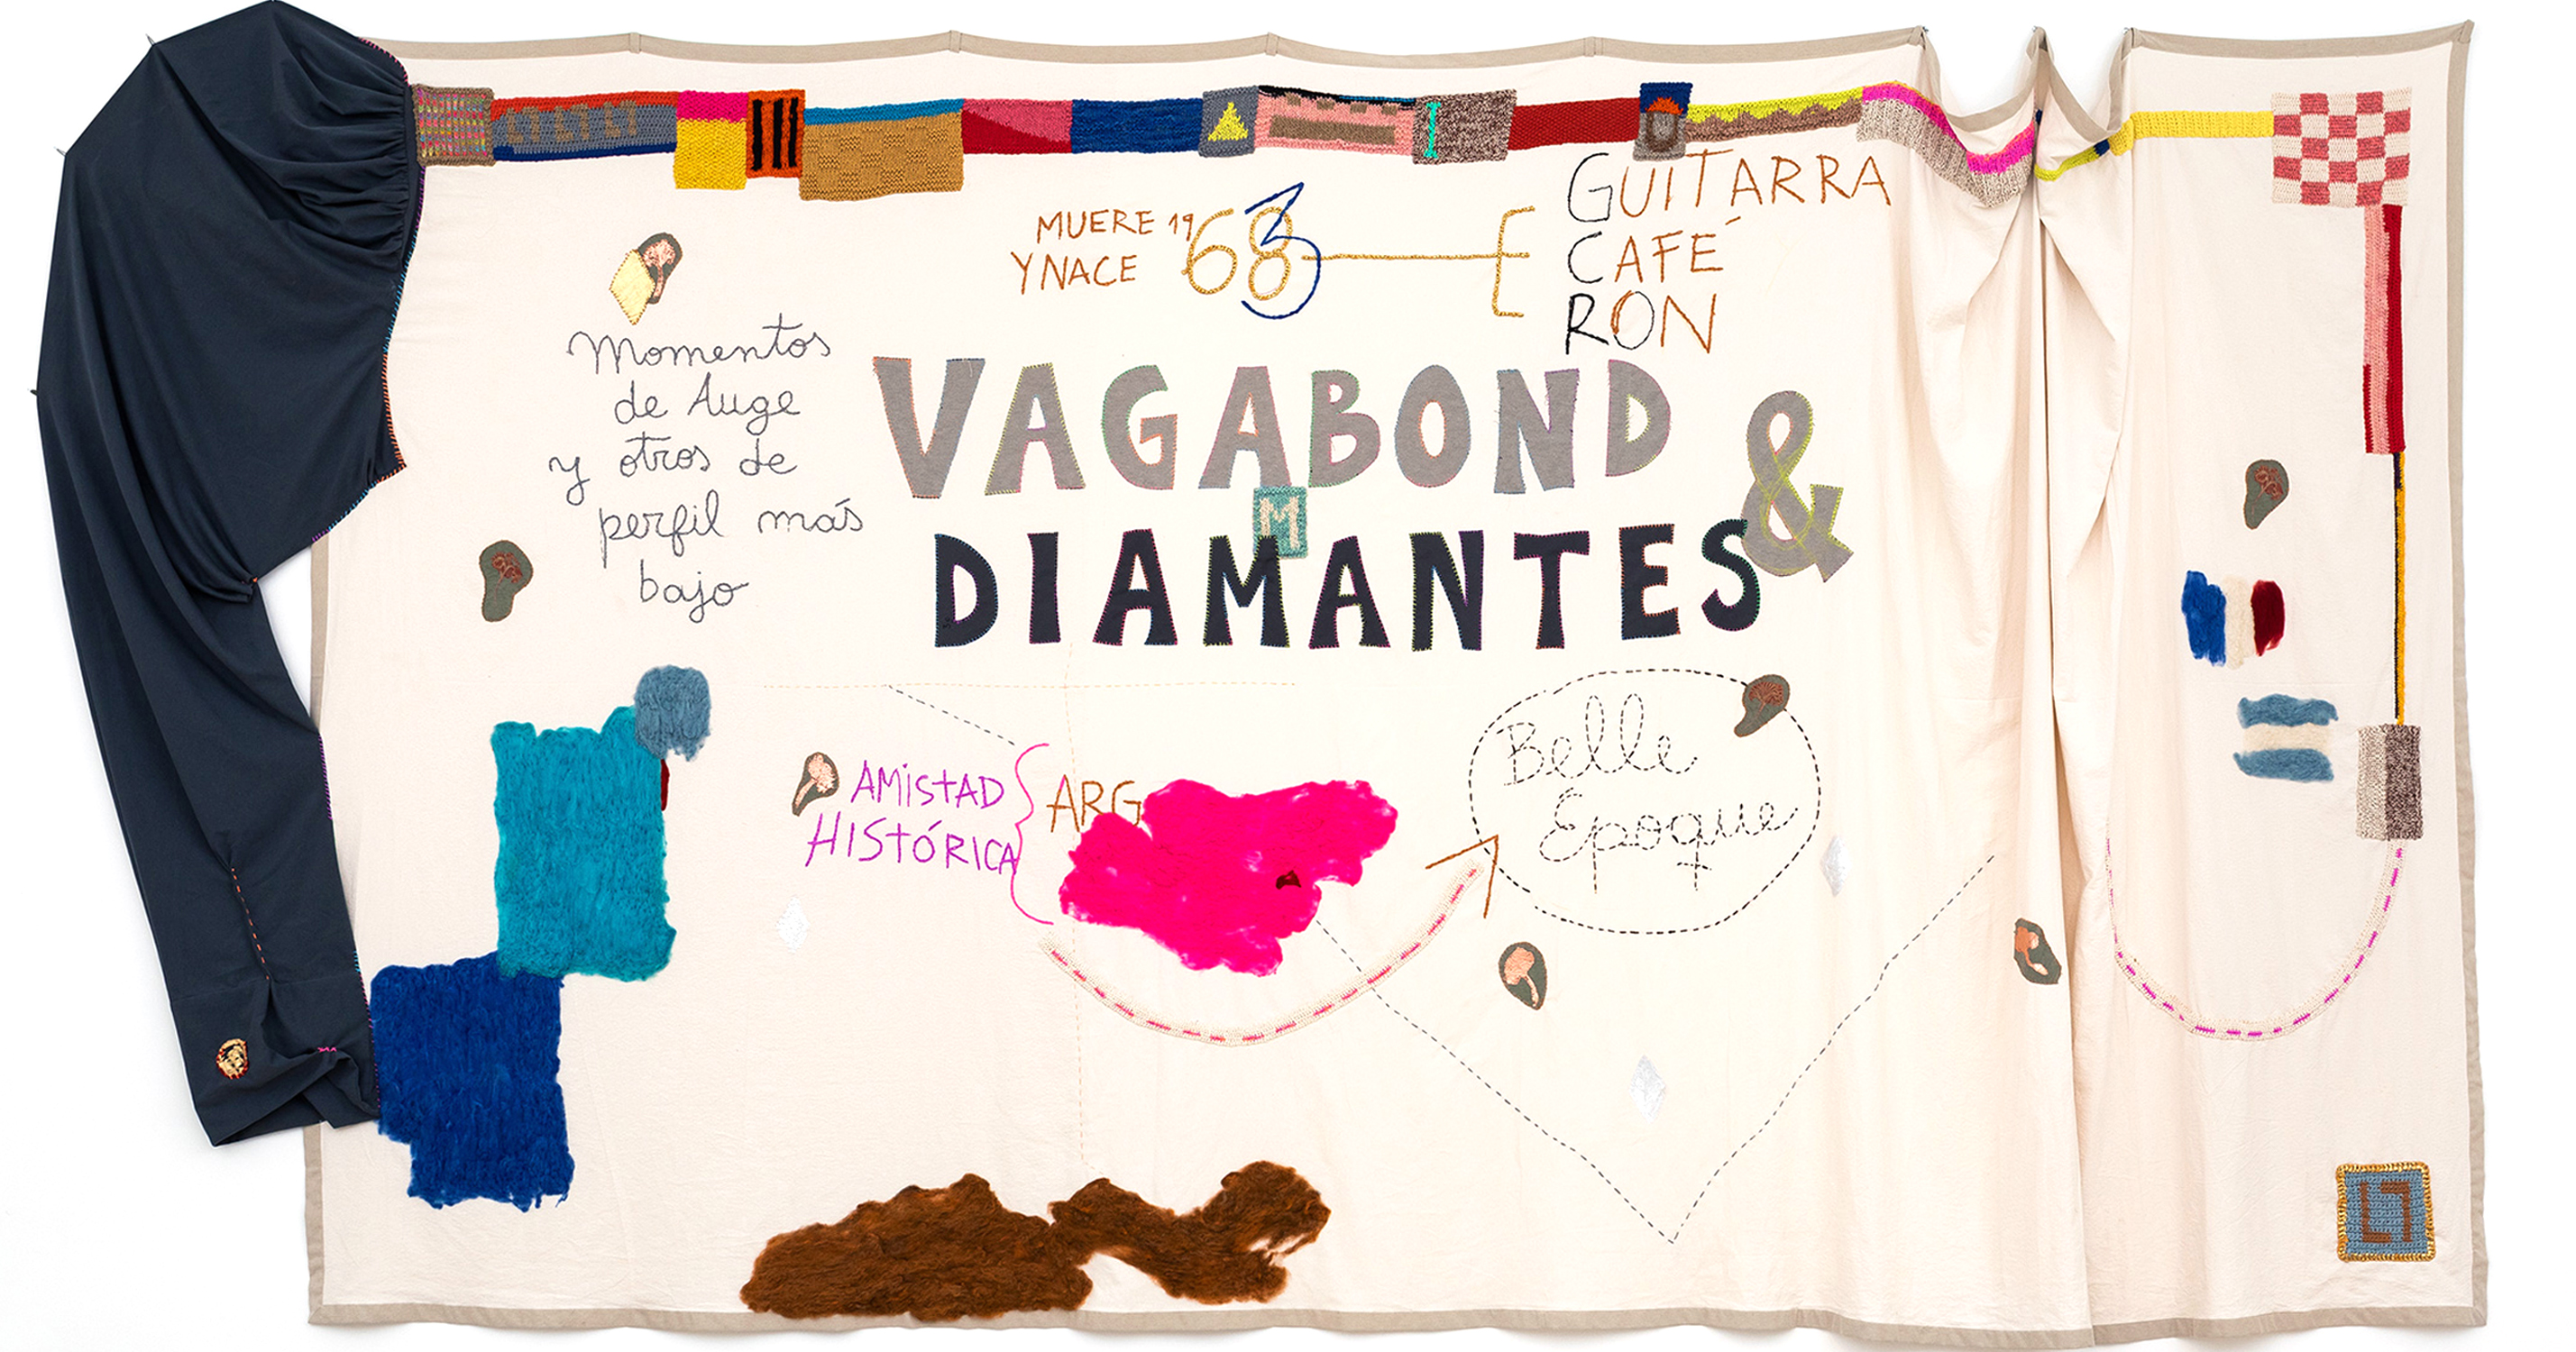 MUERE 1968 3
Y NACE
GUITARRA
CAFÉ
RON
Momentos
de Auge
y otros de
perfil más
bajo
VAGABOND &
M
DIAMANTES
AMiSTAD
HISTÓRICA
ARG
Belle
Epoque